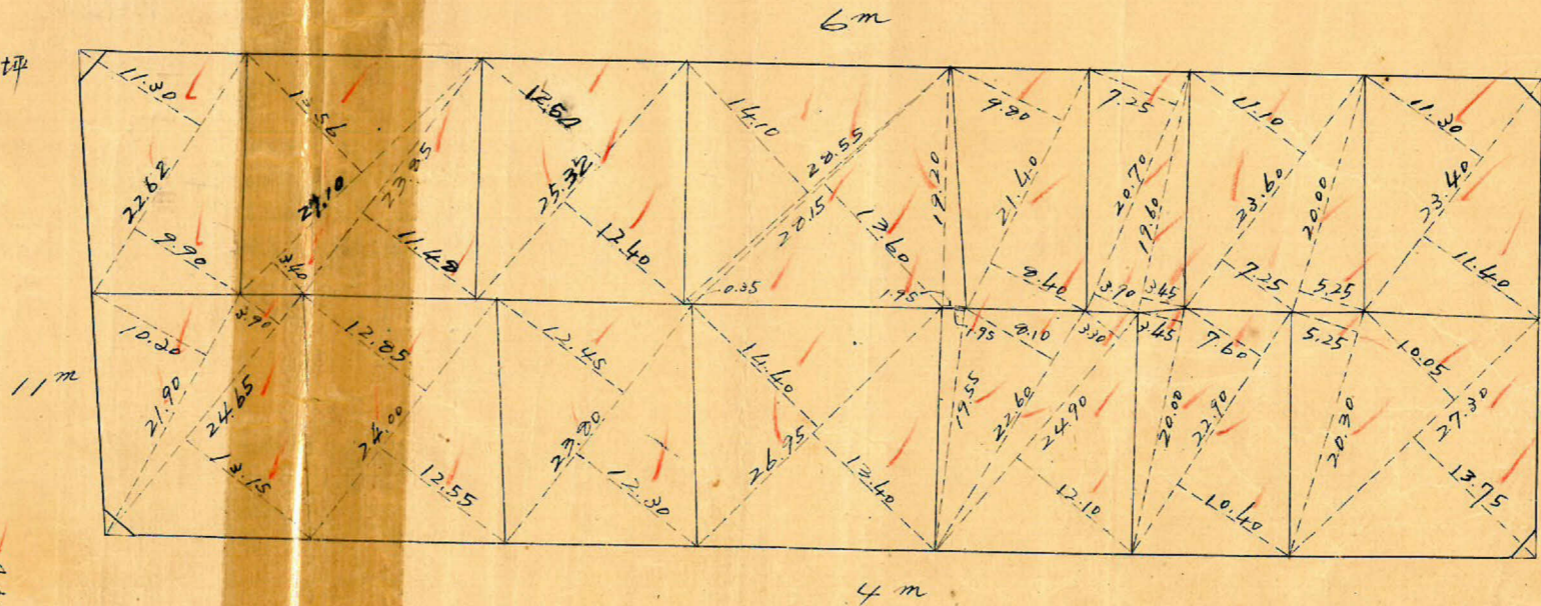 6m
坪
11.30
13.56
12.50
14.10
28.55
9.80
7.25
11.10
11.30
22.62
27.10
23.85
25.32
28.15
19.20
21.40
20.70
19.60
23.60
20.00
23.40
9.90
3.40
11.48
12.40
0.35
13.60
1.95
8.40
3.90
3.45
7.25
5.25
11.40
10.20
3.90
12.85
12.45
14.40
1.95
8.10
3.30
3.45
7.60
5.25
10.05
11m
21.90
24.65
24.00
23.80
26.95
19.55
22.60
24.90
20.00
22.90
20.30
27.30
13.15
12.55
12.30
13.40
12.10
10.40
13.75
4m